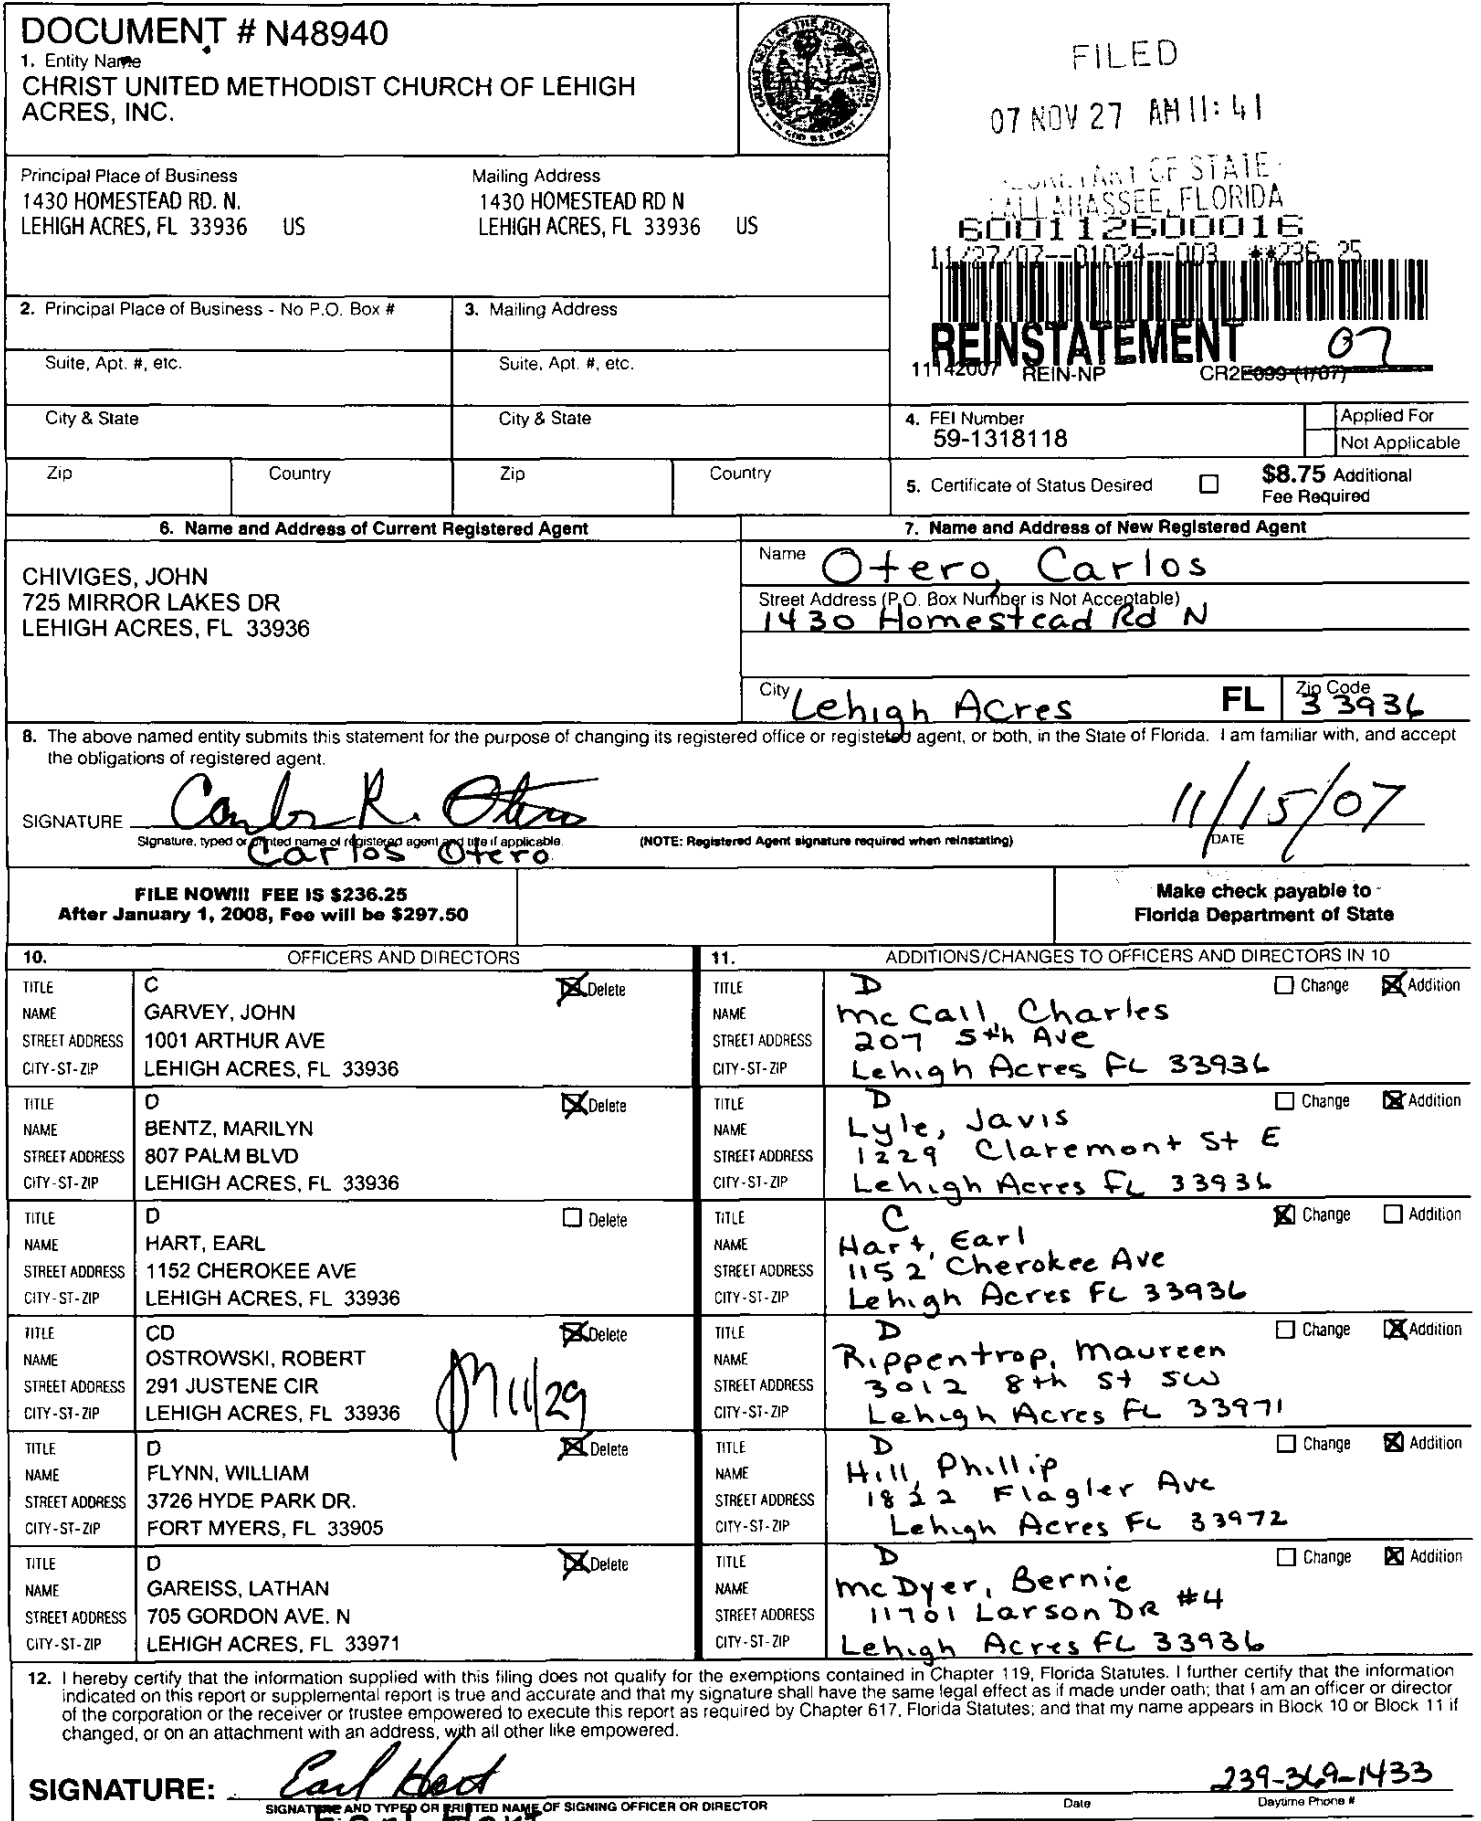 DOCUMENT # N48940
1. Entity Name
CHRIST UNITED METHODIST CHURCH OF LEHIGH
ACRES, INC.
GREAT SEAL OF THE STATE OF FLORIDA
IN GOD WE TRUST
FILED
07 NOV 27 AM 11: 41
SECRETARY OF STATE
TALLAHASSEE, FLORIDA
600112600016
11/27/07--01024--003 **236.25
REINSTATEMENT 07
11142007 REIN-NP CR2E099 (1/07)
Principal Place of Business
1430 HOMESTEAD RD. N.
LEHIGH ACRES, FL 33936 US
Mailing Address
1430 HOMESTEAD RD N
LEHIGH ACRES, FL 33936 US
2. Principal Place of Business - No P.O. Box #
3. Mailing Address
Suite, Apt. #, etc.
Suite, Apt. #, etc.
City & State
City & State
Zip Country
Zip Country
4. FEI Number
59-1318118
Applied For
Not Applicable
5. Certificate of Status Desired
$8.75 Additional
Fee Required
6. Name and Address of Current Registered Agent
CHIVIGES, JOHN
725 MIRROR LAKES DR
LEHIGH ACRES, FL 33936
7. Name and Address of New Registered Agent
Name Otero, Carlos
Street Address (P.O. Box Number is Not Acceptable)
1430 Homestead Rd N
City Lehigh Acres FL Zip Code 33936
8. The above named entity submits this statement for the purpose of changing its registered office or registered agent, or both, in the State of Florida. I am familiar with, and accept
the obligations of registered agent.
SIGNATURE Carlos R. Otero 11/15/07
Signature, typed or printed name of registered agent and title if applicable. (NOTE: Registered Agent signature required when reinstating) DATE
Carlos Otero
FILE NOW!!! FEE IS $236.25
After January 1, 2008, Fee will be $297.50
Make check payable to
Florida Department of State
10. OFFICERS AND DIRECTORS
TITLE C Delete
NAME GARVEY, JOHN
STREET ADDRESS 1001 ARTHUR AVE
CITY-ST-ZIP LEHIGH ACRES, FL 33936
TITLE D Delete
NAME BENTZ, MARILYN
STREET ADDRESS 807 PALM BLVD
CITY-ST-ZIP LEHIGH ACRES, FL 33936
TITLE D Delete
NAME HART, EARL
STREET ADDRESS 1152 CHEROKEE AVE
CITY-ST-ZIP LEHIGH ACRES, FL 33936
TITLE CD Delete
NAME OSTROWSKI, ROBERT
STREET ADDRESS 291 JUSTENE CIR
CITY-ST-ZIP LEHIGH ACRES, FL 33936
11/29
TITLE D Delete
NAME FLYNN, WILLIAM
STREET ADDRESS 3726 HYDE PARK DR.
CITY-ST-ZIP FORT MYERS, FL 33905
TITLE D Delete
NAME GAREISS, LATHAN
STREET ADDRESS 705 GORDON AVE. N
CITY-ST-ZIP LEHIGH ACRES, FL 33971
11. ADDITIONS/CHANGES TO OFFICERS AND DIRECTORS IN 10
TITLE D Change Addition
NAME McCall, Charles
STREET ADDRESS 207 5th Ave
CITY-ST-ZIP Lehigh Acres FL 33936
TITLE D Change Addition
NAME Lyle, Javis
STREET ADDRESS 1229 Claremont St E
CITY-ST-ZIP Lehigh Acres FL 33936
TITLE C Change Addition
NAME Hart, Earl
STREET ADDRESS 1152 Cherokee Ave
CITY-ST-ZIP Lehigh Acres FL 33936
TITLE D Change Addition
NAME Rippentrop, Maureen
STREET ADDRESS 3012 8th St SW
CITY-ST-ZIP Lehigh Acres FL 33971
TITLE D Change Addition
NAME Hill, Phillip
STREET ADDRESS 1822 Flagler Ave
CITY-ST-ZIP Lehigh Acres FL 33972
TITLE D Change Addition
NAME McDyer, Bernie
STREET ADDRESS 11701 Larson DR #4
CITY-ST-ZIP Lehigh Acres FL 33936
12. I hereby certify that the information supplied with this filing does not qualify for the exemptions contained in Chapter 119, Florida Statutes. I further certify that the information
indicated on this report or supplemental report is true and accurate and that my signature shall have the same legal effect as if made under oath; that I am an officer or director
of the corporation or the receiver or trustee empowered to execute this report as required by Chapter 617, Florida Statutes; and that my name appears in Block 10 or Block 11 if
changed, or on an attachment with an address, with all other like empowered.
SIGNATURE: Earl Hart 239-369-1433
SIGNATURE AND TYPED OR PRINTED NAME OF SIGNING OFFICER OR DIRECTOR Date Daytime Phone #
Earl Hart